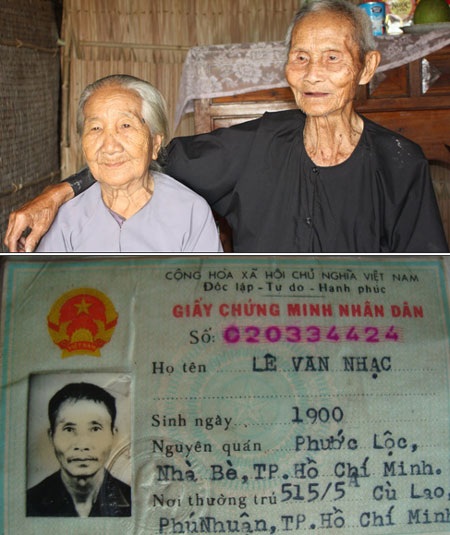 CỘNG HÒA XÃ HỘI CHỦ NGHĨA VIỆT NAM
Độc lập - Tự do - Hạnh phúc
GIẤY CHỨNG MINH NHÂN DÂN
Số: 020334424
Họ tên LÊ VĂN NHẠC
Sinh ngày 1900
Nguyên quán Phước Lộc,
Nhà Bè, TP.Hồ Chí Minh.
Nơi thường trú 515/5A Cù Lao,
Phú Nhuận, TP.Hồ Chí Minh